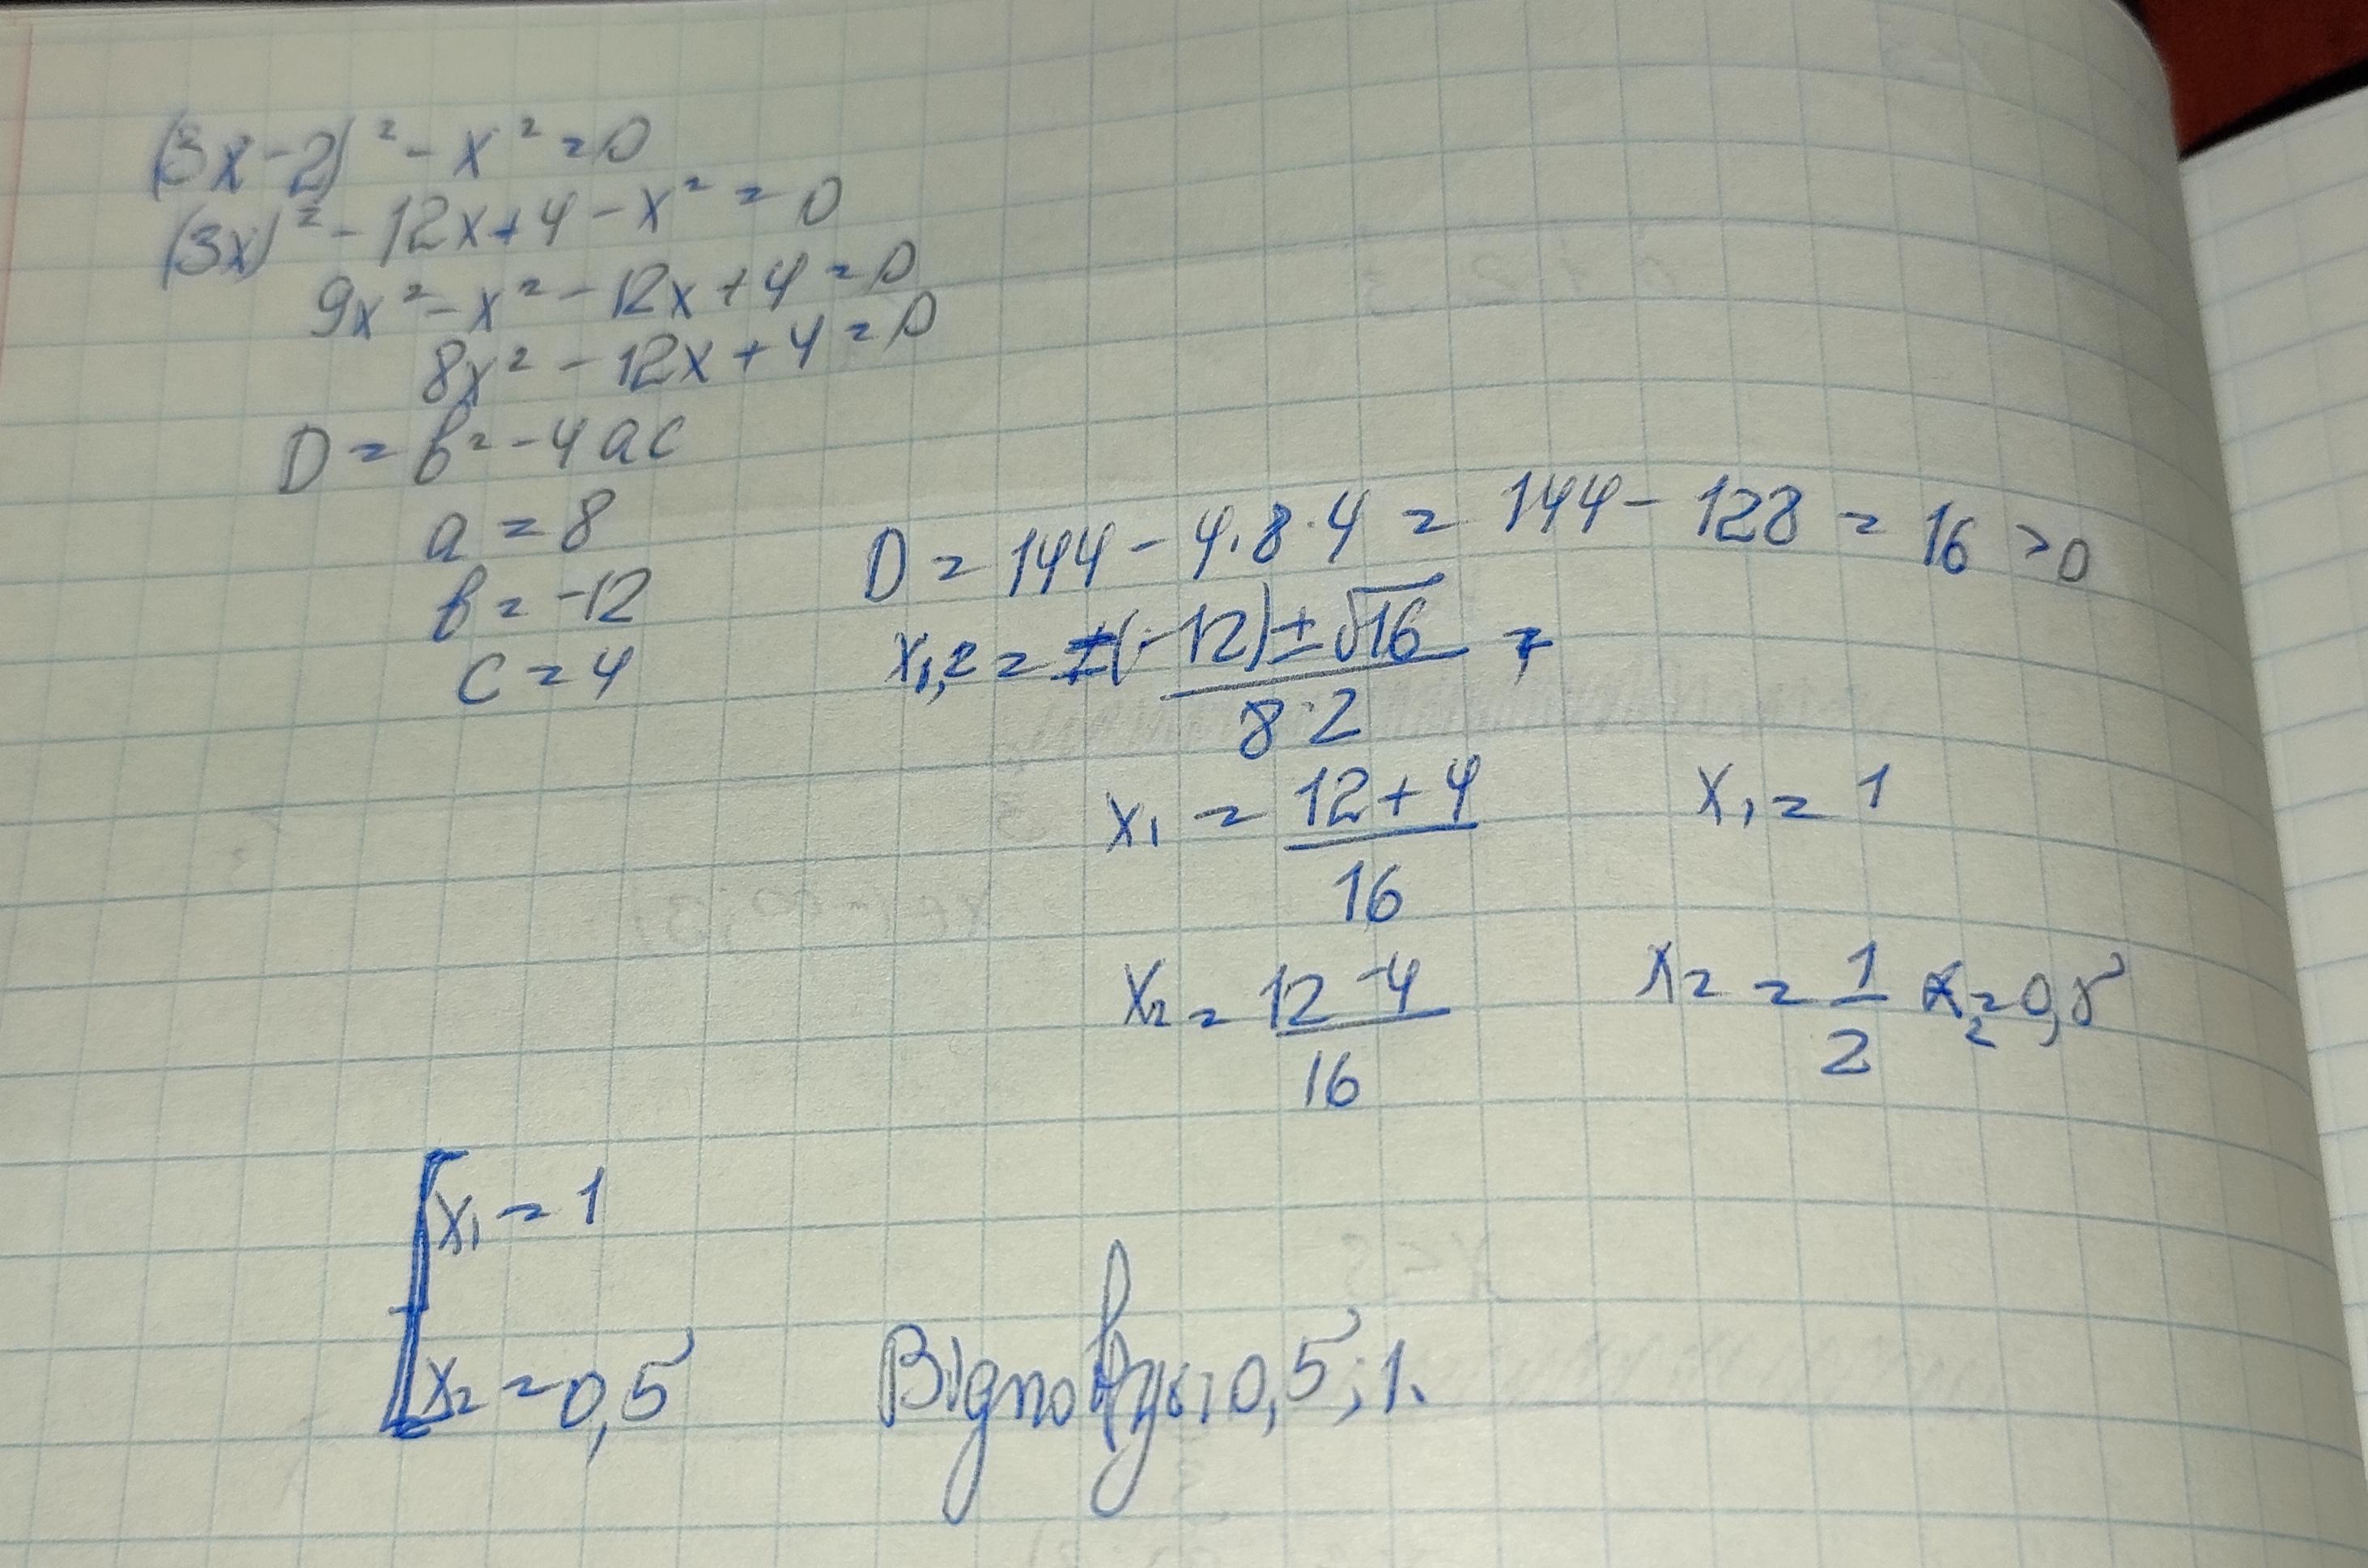 (3x-2)² - x² = 0
(3x)² - 12x + 4 - x² = 0
9x² - x² - 12x + 4 = 0
8x² - 12x + 4 = 0
D = b² - 4ac
a = 8
b = -12
c = 4
D = 144 - 4·8·4 = 144 - 128 = 16 > 0
x₁,₂ = (-12) ± √16
8·2
x₁ = 12 + 4 / 16 x₁ = 1
x₂ = 12 - 4 / 16 x₂ = 1/2 x₂ = 0,5
[x₁ = 1
x₂ = 0,5
Відповідь: 0,5; 1.